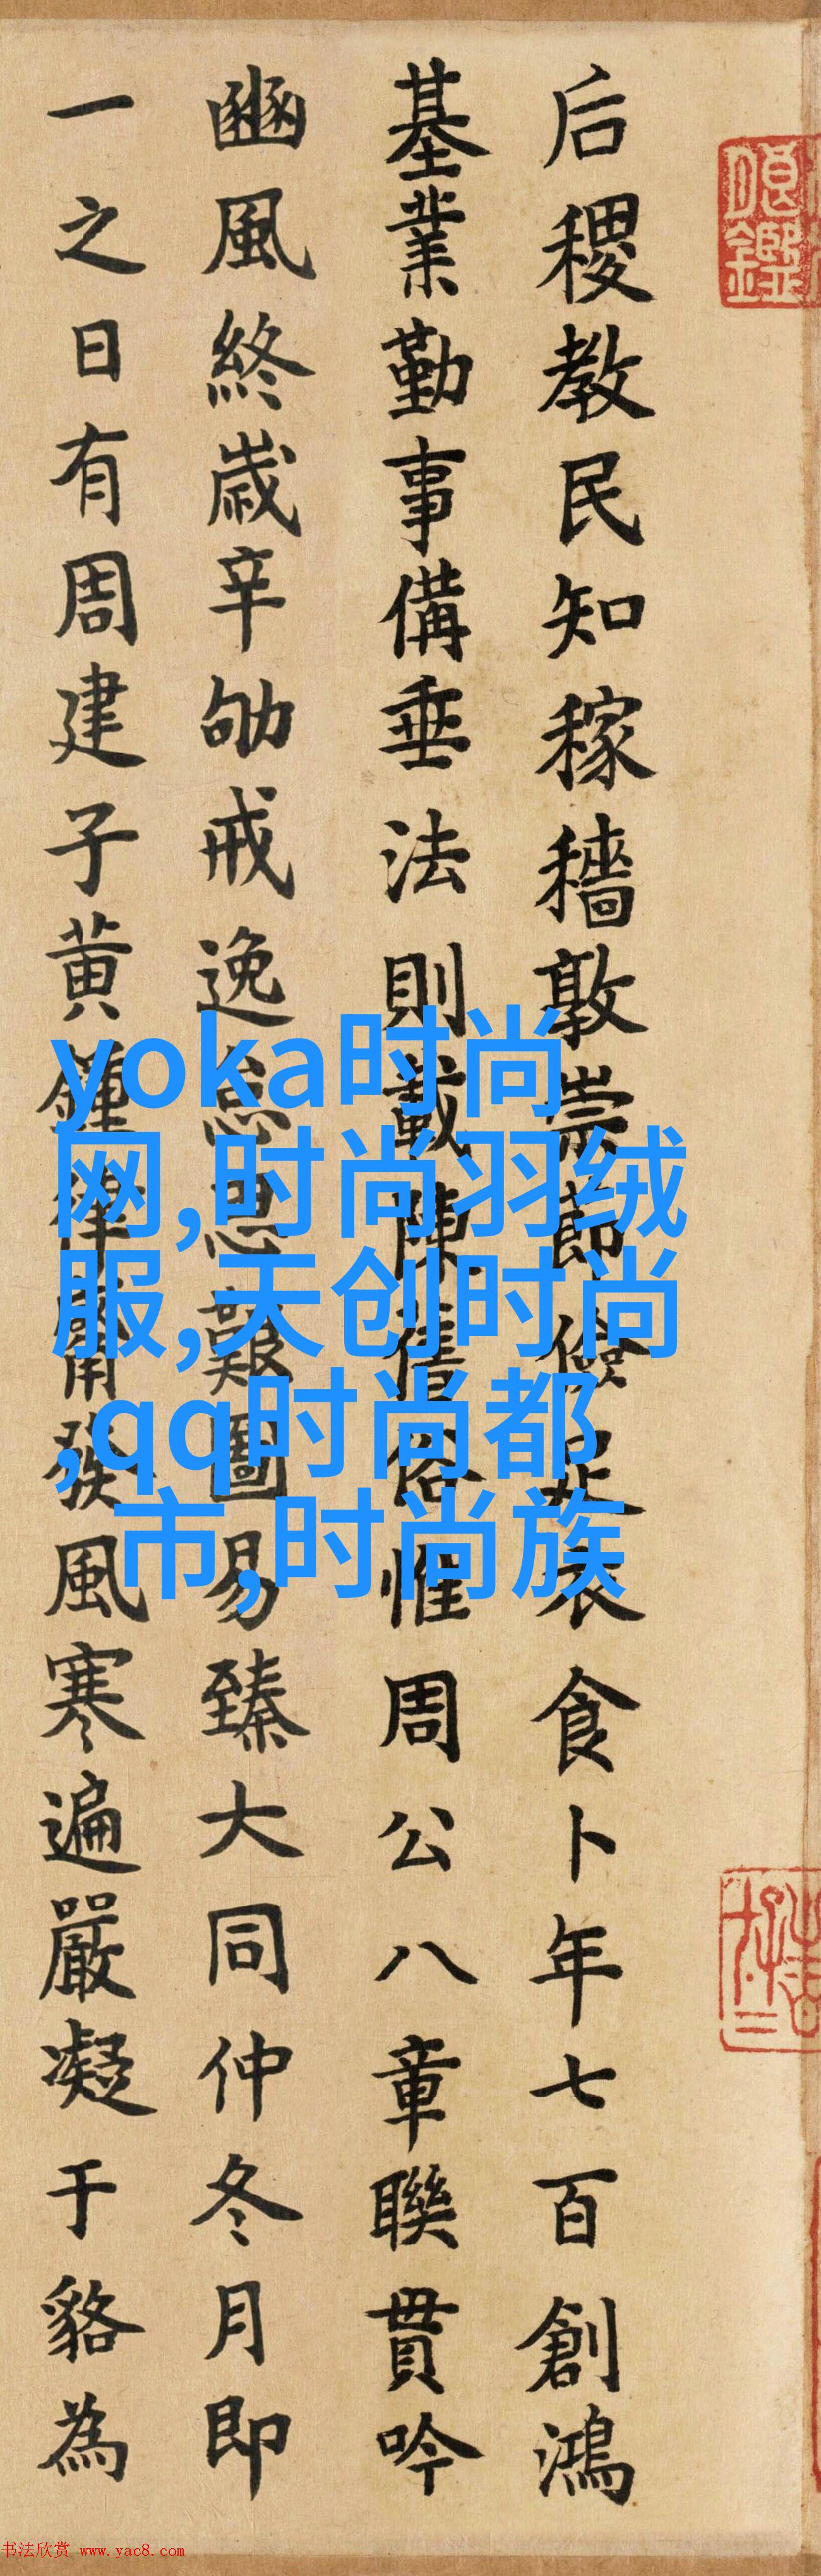 后稷教民知稼穡敦崇節儉足衣食卜年七百創鴻
基業勤事備垂法則載陳舊俗惟周公八章聯貫吟
豳風終歲辛劬戒逸怠思艱圖易臻大同仲冬月即
一之日有周建子黃鍾律觱發風寒遍嚴凝于貉為
yoka时尚
网,时尚羽绒
服,天创时尚
,qq时尚都
市,时尚族
书法欣赏 www.yac8.com